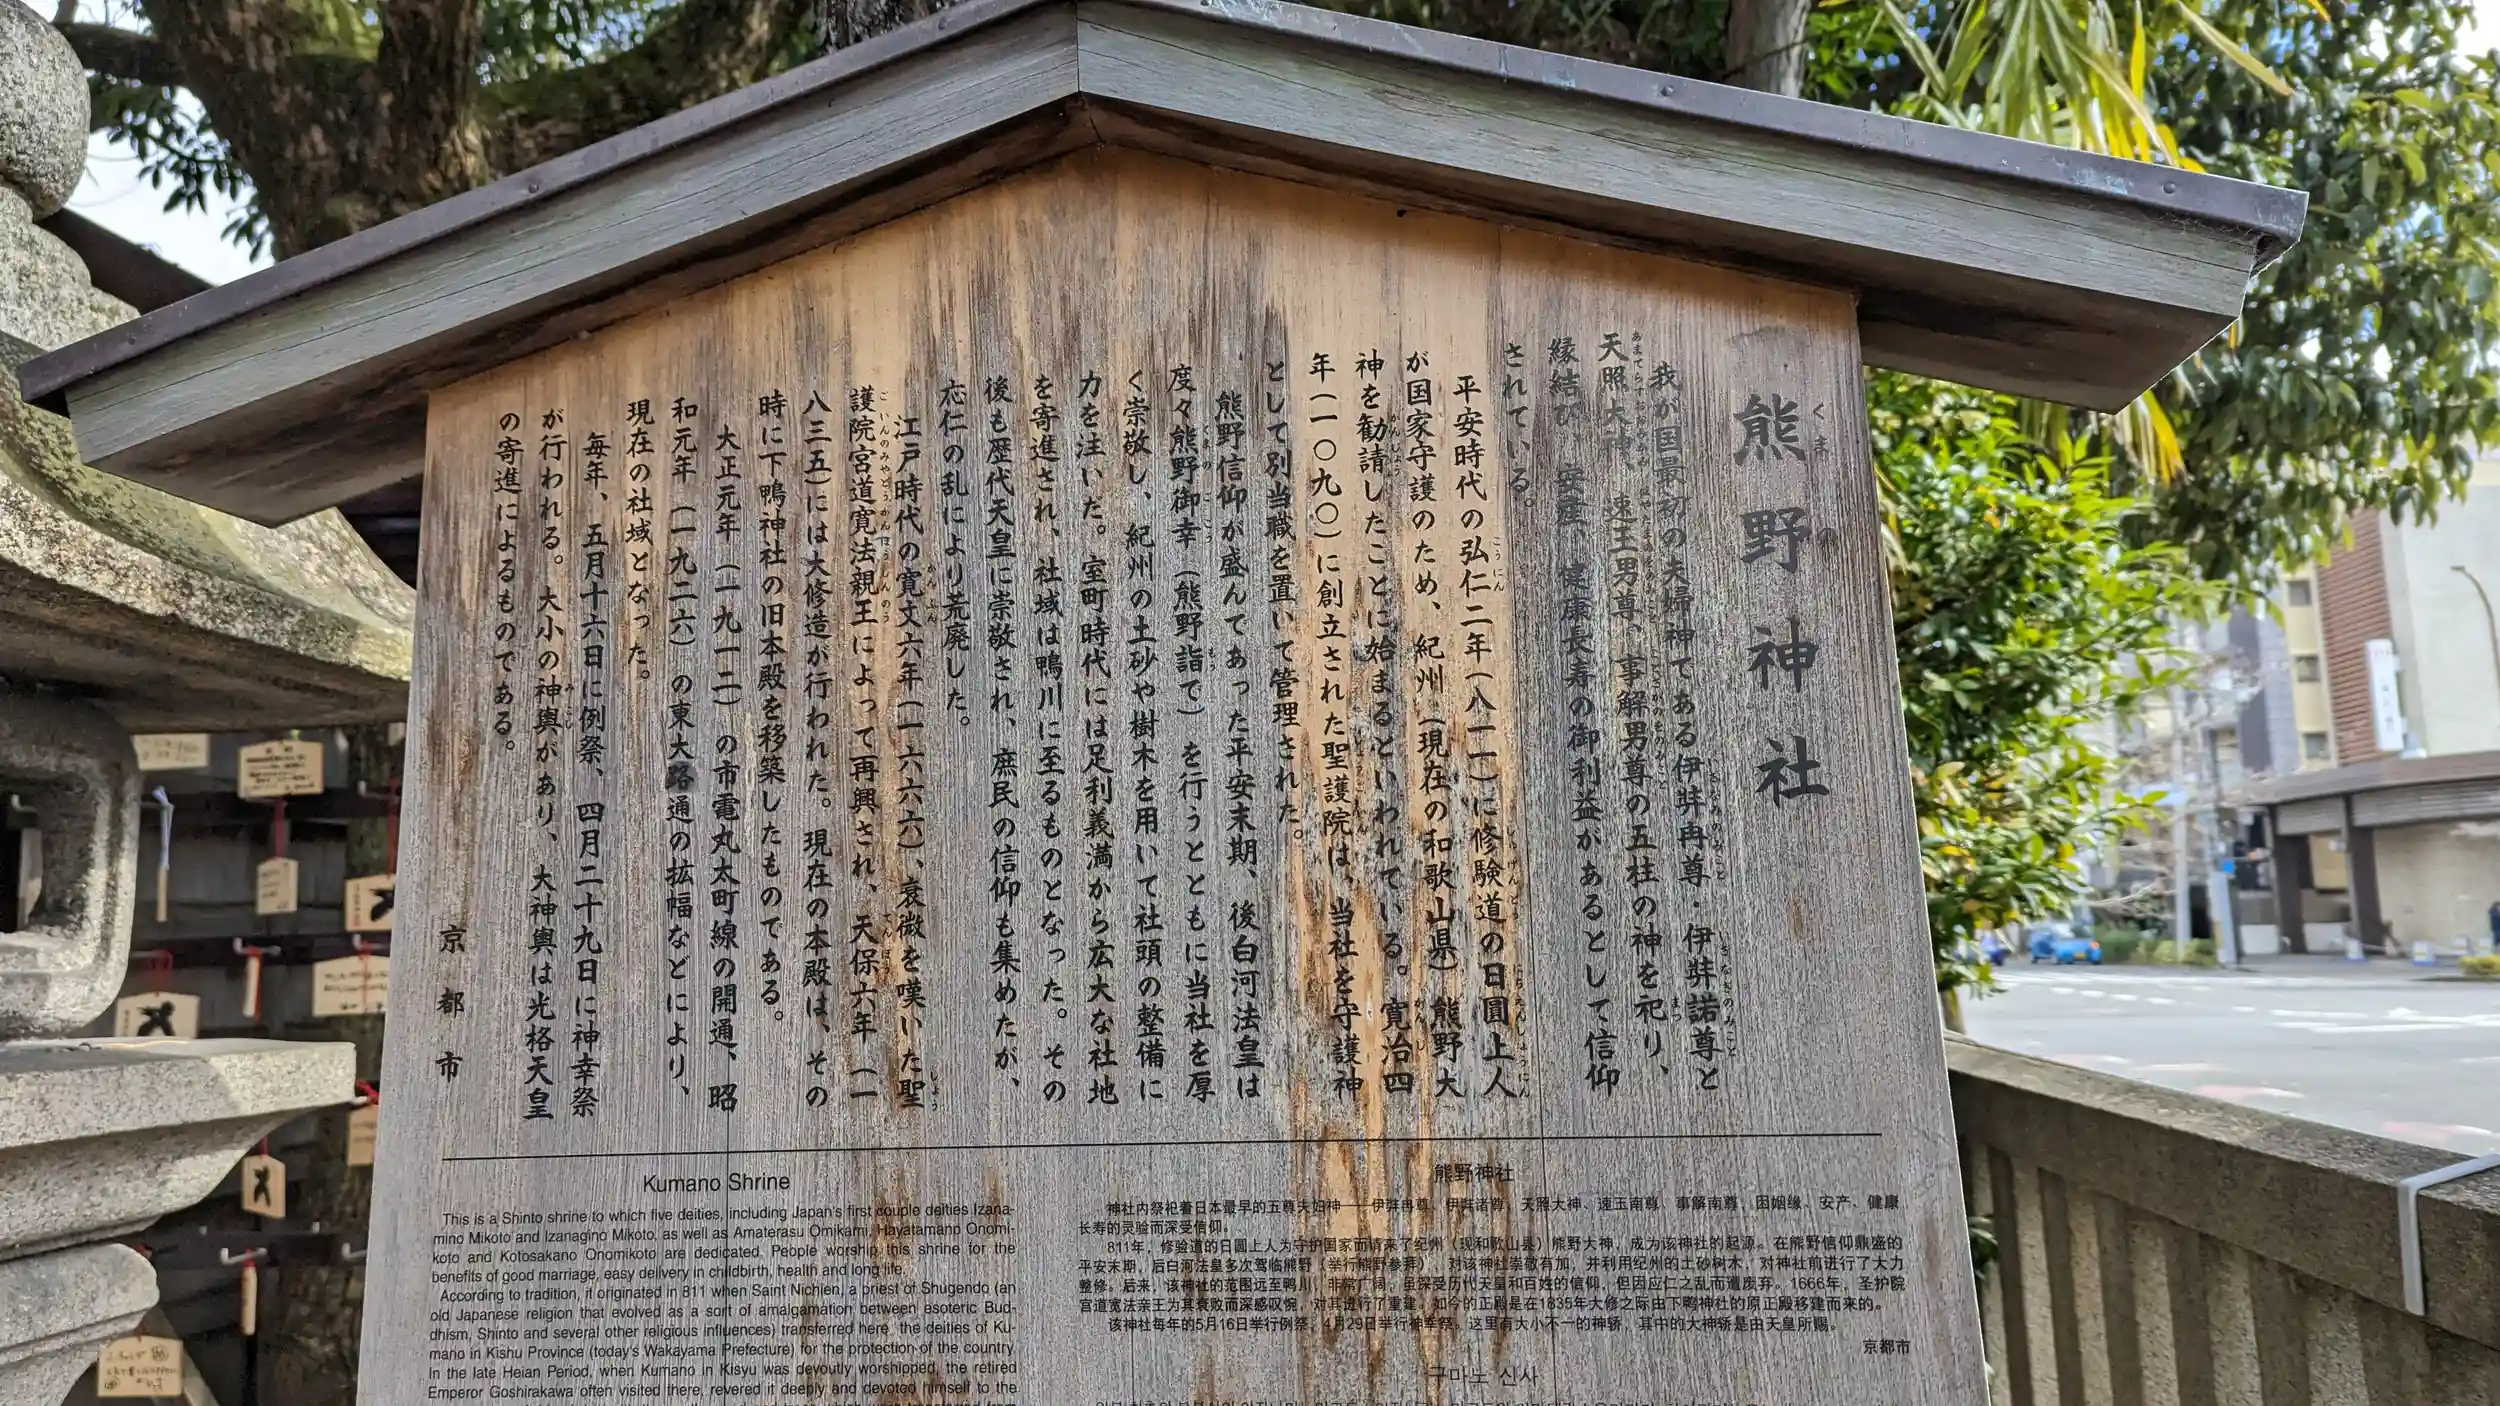 熊野神社
くまの
我が国最初の夫婦神である伊弉冉尊・伊弉諾尊と
天照大神、速玉男尊、事解男尊の五柱の神を祀り、
縁結び、安産、健康長寿の御利益があるとして信仰
されている。
平安時代の弘仁二年(八一一)に修験道の日圓上人
が国家守護のため、紀州(現在の和歌山県)熊野大
神を勧請したことに始まるといわれている。寛治四
年(一〇九〇)に創立された聖護院は、当社を守護神
として別当職を置いて管理された。
熊野信仰が盛んであった平安末期、後白河法皇は
度々熊野御幸(熊野詣で)を行うとともに当社を厚
く崇敬し、紀州の土砂や樹木を用いて社頭の整備に
力を注いだ。室町時代には足利義満から広大な社地
を寄進され、社域は鴨川に至るものとなった。その
後も歴代天皇に崇敬され、庶民の信仰も集めたが、
応仁の乱により荒廃した。
江戸時代の寛文六年(一六六六)、衰微を嘆いた聖
護院宮道寛法親王によって再興され、天保六年(一
八三五)には大修造が行われた。現在の本殿は、その
時に下鴨神社の旧本殿を移築したものである。
大正元年(一九一二)の市電丸太町線の開通、昭
和元年(一九二六)の東大路通の拡幅などにより、
現在の社域となった。
毎年、五月十六日に例祭、四月二十九日に神幸祭
が行われる。大小の神輿があり、大神輿は光格天皇
の寄進によるものである。
京都市
Kumano Shrine
This is a Shinto shrine to which five deities, including Japan's first couple deities Izana-
mino Mikoto and Izanagino Mikoto, as well as Amaterasu Omikami, Hayatamano Onomi-
koto and Kotosakano Onomikoto are dedicated. People worship this shrine for the
benefits of good marriage, easy delivery in childbirth, health and long life.
According to tradition, it originated in 811 when Saint Nichien, a priest of Shugendo (an
old Japanese religion that evolved as a sort of amalgamation between esoteric Bud-
dhism, Shinto and several other religious influences) transferred here, the deities of Ku-
mano in Kishu Province (today's Wakayama Prefecture) for the protection of the country.
In the late Heian Period, when Kumano in Kisyu was devoutly worshipped, the retired
Emperor Goshirakawa often visited there, revered it deeply and devoted himself to the
熊野神社
神社内祭祀着日本最早的五尊夫妇神——伊弉冉尊、伊弉诸尊、天照大神、速玉南尊、事解南尊，因姻缘、安产、健康
长寿的灵验而深受信仰。
811年，修验道的日圆上人为守护国家而请来了纪州（现和歌山县）熊野大神，成为该神社的起源。在熊野信仰鼎盛的
平安末期，后白河法皇多次驾临熊野（举行熊野参拜），对该神社崇敬有加，并利用纪州的土砂树木，对神社前进行了大力
整修。后来，该神社的范围远至鸭川，非常广阔，虽深受历代天皇和百姓的信仰，但因应仁之乱而遭废弃。1666年，圣护院
宫道宽法亲王为其衰败而深感叹惋，对其进行了重建。如今的正殿是在1835年大修之际由下鸭神社的原正殿移建而来的。
该神社每年的5月16日举行例祭，4月29日举行神幸祭。这里有大小不一的神轿，其中的大神轿是由天皇所赐。
京都市
구마노 신사